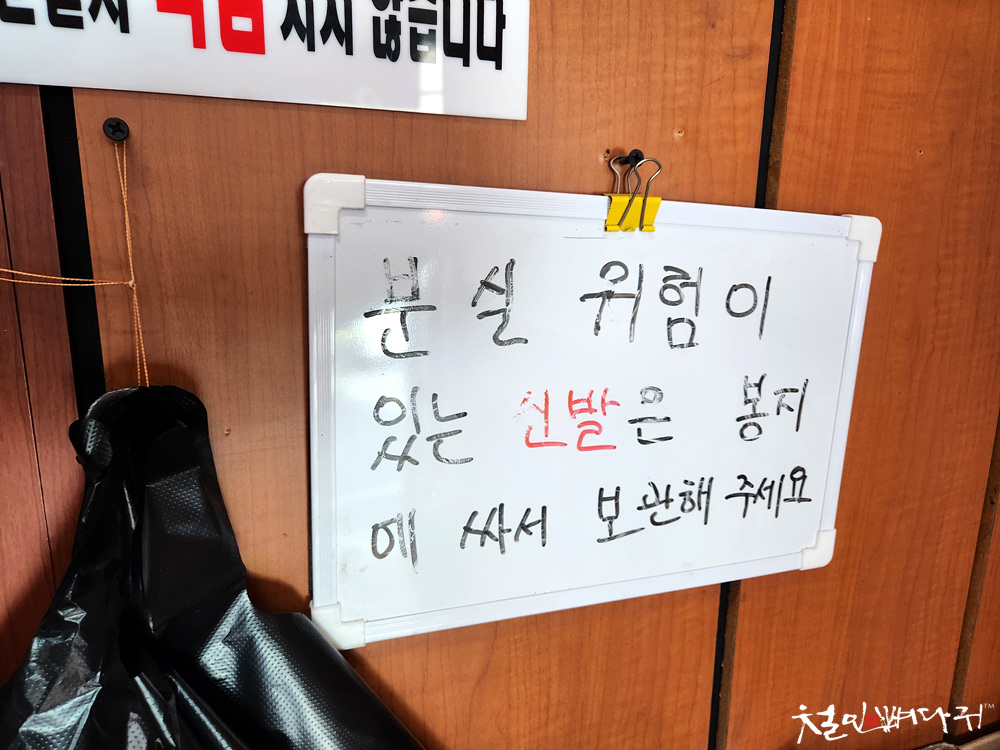 지지 않습니다
분실 위험이
있는 신발은 봉지
에 싸서 보관해 주세요
철인뼈다귀™